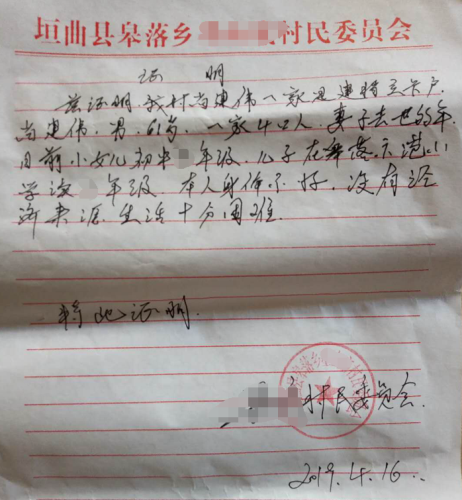 垣曲县皋落乡 村民委员会
证 明
兹证明,我村尚建伟一家是建档立卡户
尚建伟,男,61岁,一家4口人,妻子去世多年,
目前小女儿初中 年级,儿子在皋落 小
学读 年级,本人身体不好,没有经
济来源,生活十分困难.
特此证明.
村民委员会.
2019.4.16